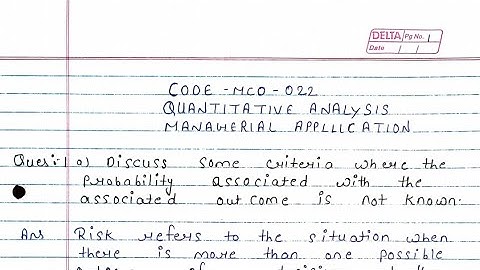 DELTA Pg No. 1
Date / /
CODE - MCO - 022
QUANTITATIVE ANALYSIS
MANAWERIAL APPLLICATION
Ques:-1 a) Discuss some criteria where the
probability associated with the
associated outcome is not known.
Ans Risk refers to the situation when
there is more than one possible